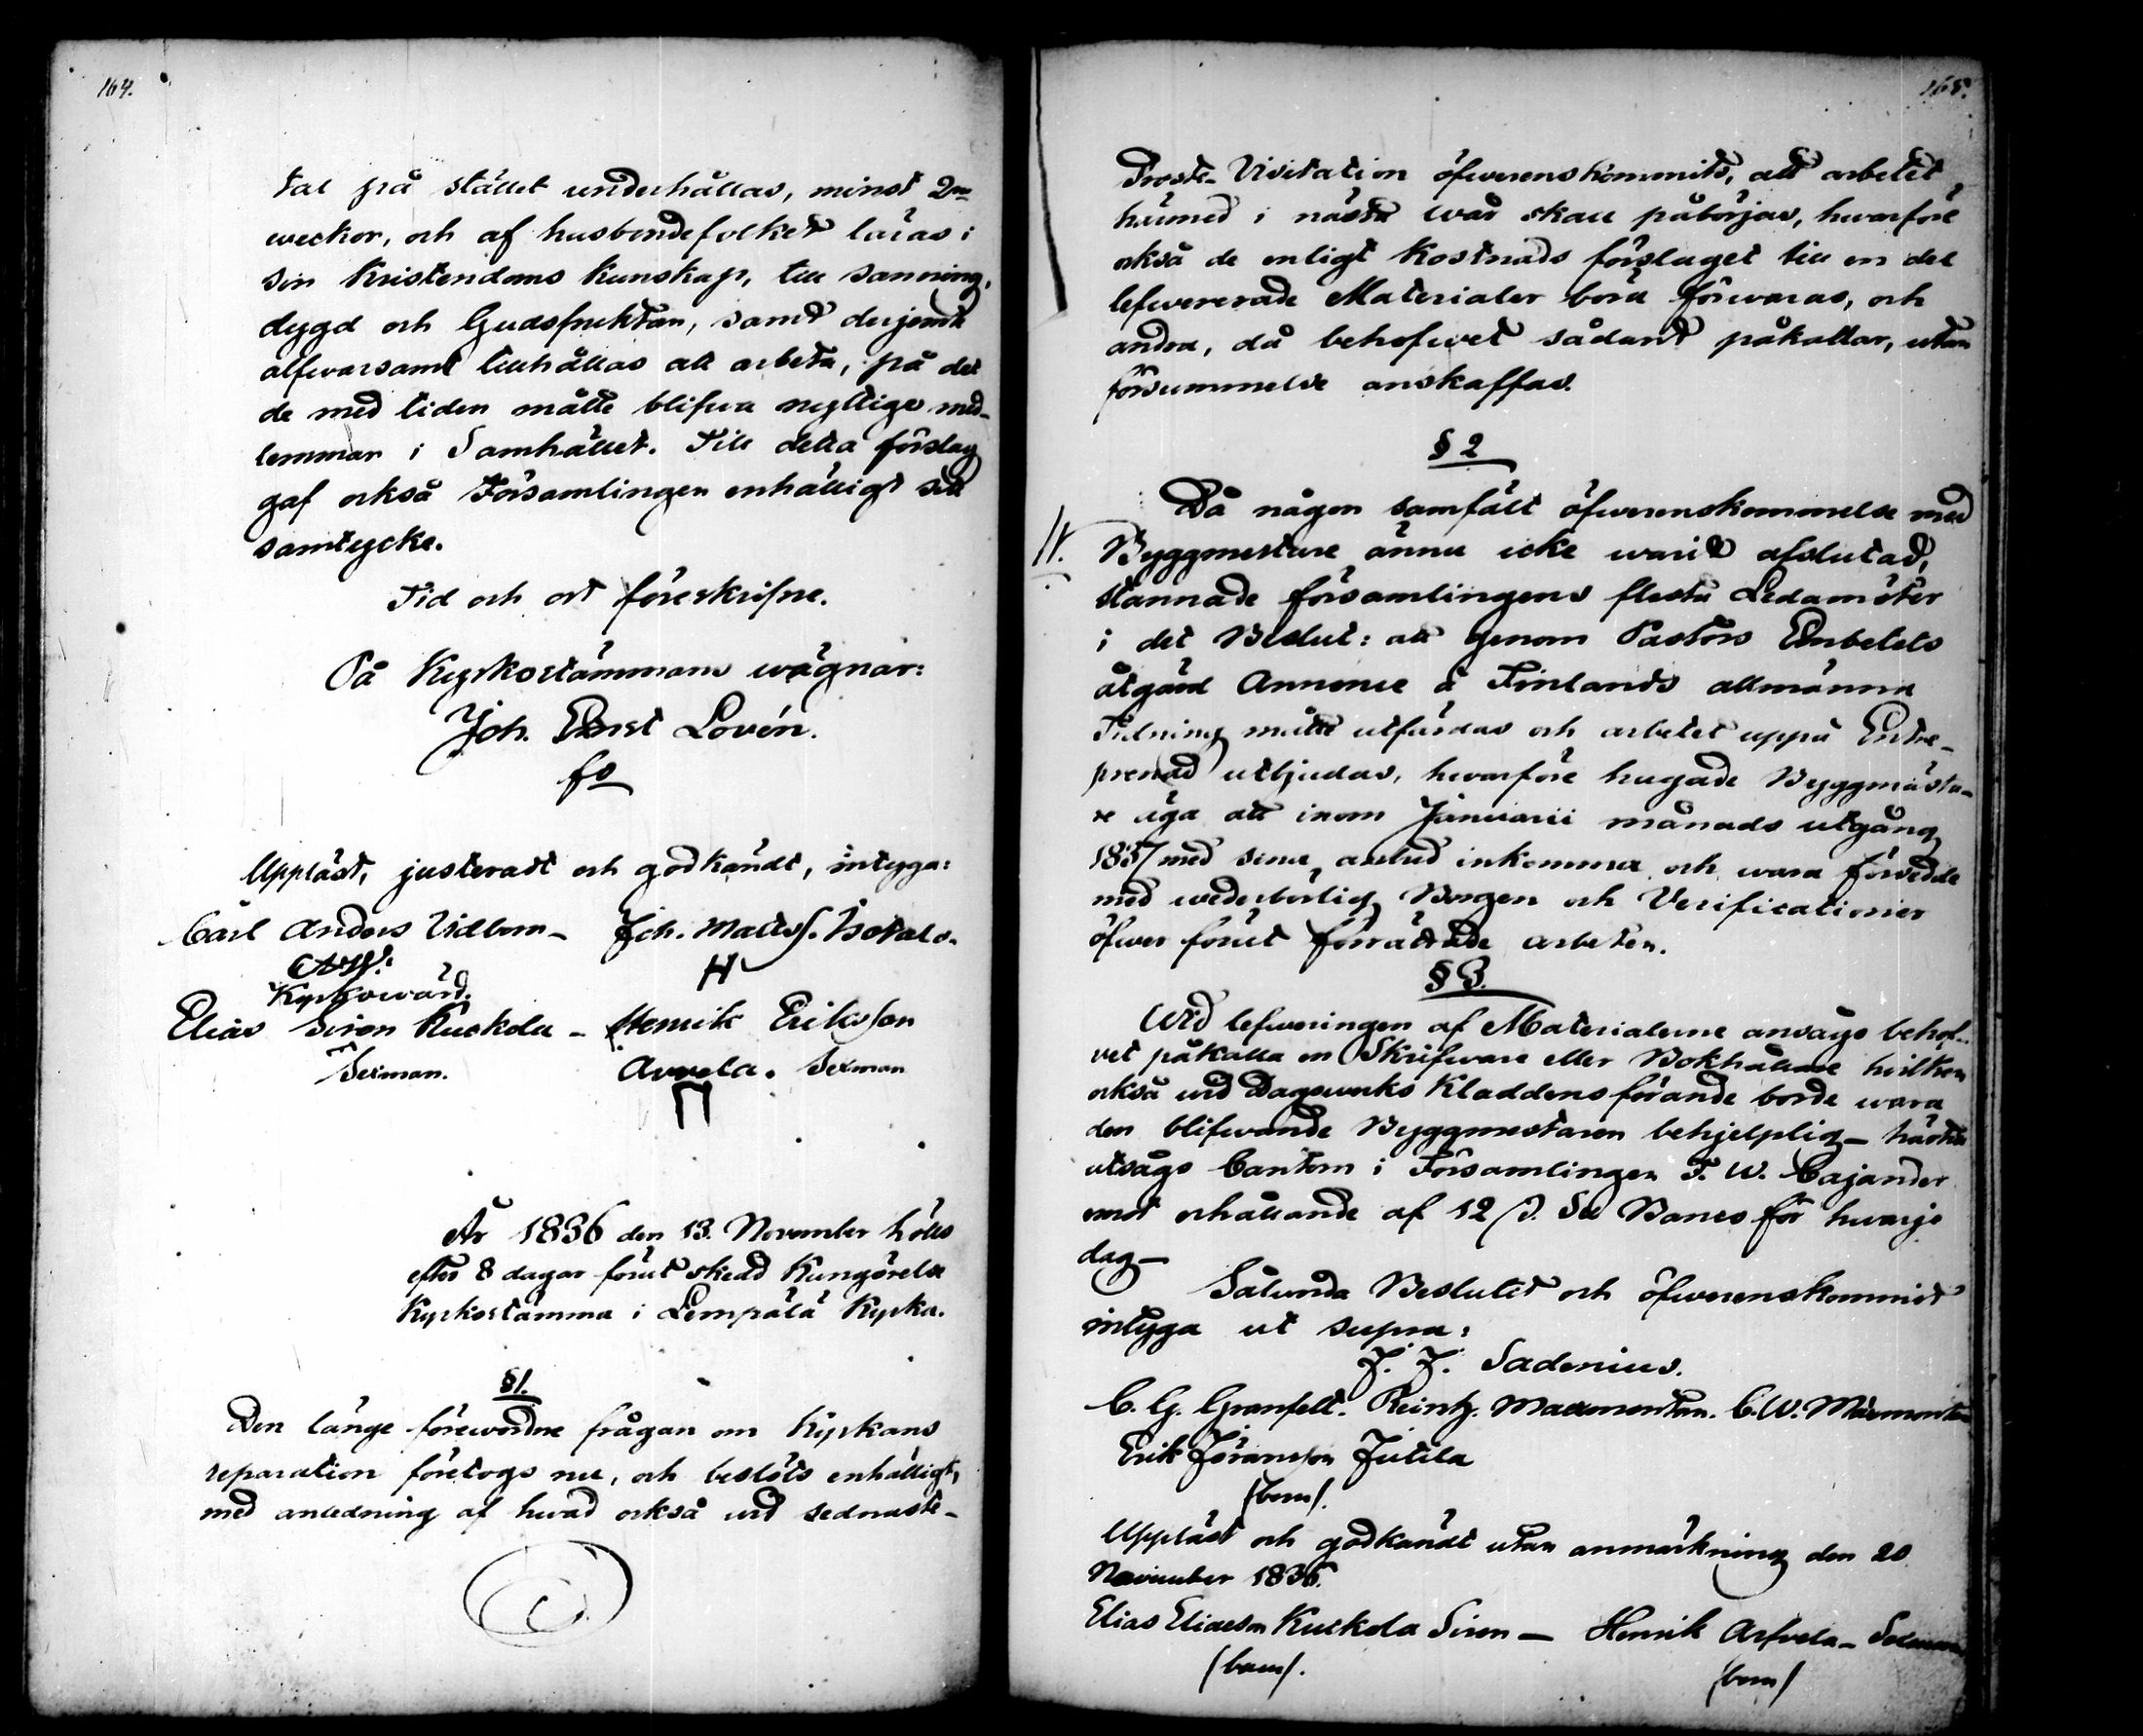 164.
tal på stället underhållas, minst 2ne
weckor, och af husbondefolket läras i
sin Kristendoms kunskap, till sanning,
dygd och Gudsfruktan, samt derjemte
alfwarsamt tillhållas att arbeta, på det
de med tiden måtte blifwa nyttige med-
lemmar i Samhället. Till detta förslag
gaf också Församlingen enhälligt sitt
samtycke.
Tid och ort föreskrifne.
På Kyrkostämmans wägnar:
Joh. Ernst Lovén.
Uppläst, justeradt och godkändt, intyga:
Carl Anders Widbom - Joh. Matts. Isotalo.
Kyrkowärd.
Elias Siren Kuckola - Henrik Eriksson
Sexman. Arvela. Sexman
År 1836 den 13. November hölls
efter 8 dagar förut skedd Kungörelse
Kyrkostämma i Lempälä Kyrka.
§1.
Den länge förewordne frågan om Kyrkans
reparation företogs nu, och beslöts enhälligt,
med anledning af hwad också wid sednaste-
165.
Proste-Visitation öfwerenskommits, att arbetet
härmed i nästa wår skall påbörjas, hwarföre
också de enligt Kostnads förslaget till en del
lefwererade Materialer böra förwaras, och
andra, då behofwet sådant påkallar, utan
försummelse anskaffas.
§ 2
Då någon samfält öfwerenskommelse med
Byggmestare ännu icke warit afslutad,
stannade församlingens flesta Ledamöter
i det Beslut: att genom Pastors Embetets
åtgärd Annonce å Finlands allmänna
Tidning måtte utfärdas och arbetet uppå Entre-
prenad utbjudas, hwarföre hugade Byggmästa-
re äga att inom Januarii månads utgång
1837 med sina anbud inkomma och wara försedde
med wederbörlig Borgen och Verificationer
öfwer förut förrättade arbeten.
§ 3.
Wid lefweringen af Materialerne ansågs behof-
vet påkalla en Skrifware eller Bokhållare hvilken
också wid Dagswerks Kladdens förande borde wara
den blifwande Byggmestaren behjelplig - härtill
utsågs Cantorn i Församlingen F. W. Cajander
emot erhållande af 12 s. Sell Banco för hwarje
dag -
Sålunda Beslutit och öfwerenskommit
intyga ut supra:
J. J. Sadenius.
C. G. Granfelt. Reinh. Maxmontan. C. W. Maxmontan
Erik Jöransson Jutila
(bom).
Uppläst och godkändt utan anmärkning den 20
November 1836.
Elias Eliaeson Kuckola Siren - Henrik Arfvela - Sexman
(bom). (bom)